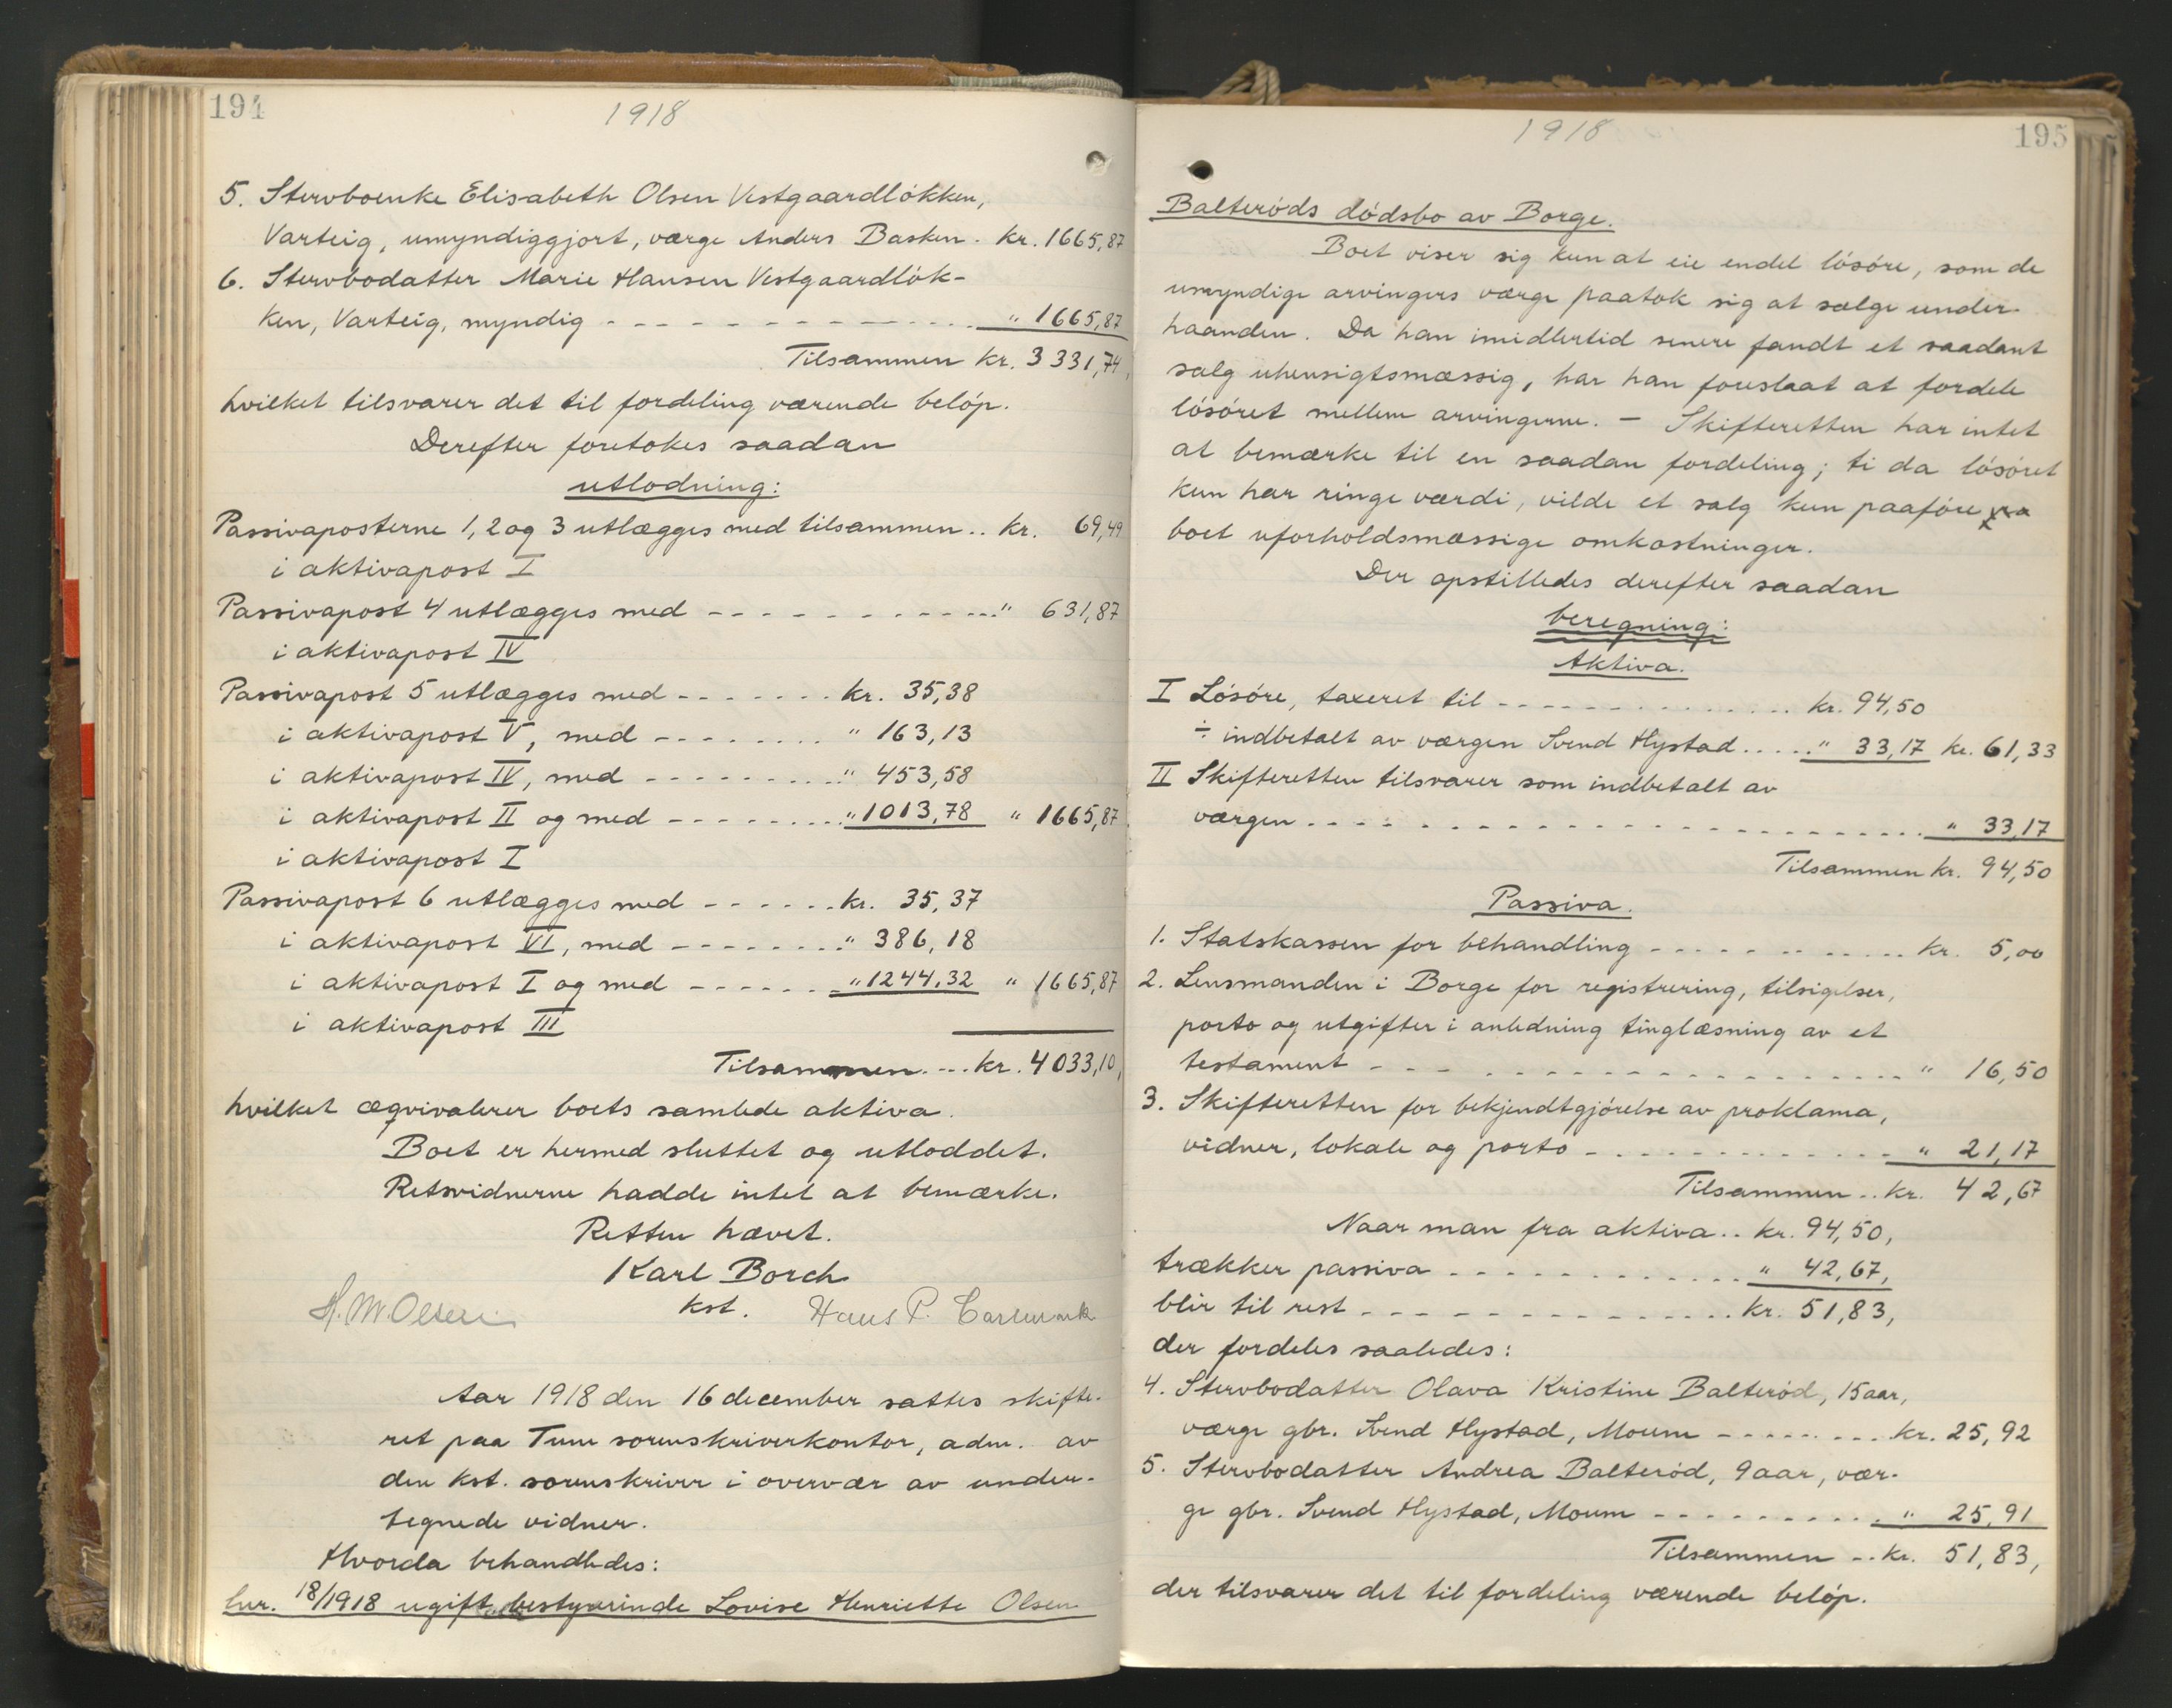 194
1918
5. Stervboenke Elisabeth Olsen Vestgaardløkken,
Varteig, umyndiggjort, værge Anders Basken. kr. 1665,87
6. Stervbodatter Marie Hansen Vestgaardløk-
ken, Varteig, myndig - - - - - - - - - - - " 1665,87
Tilsammen kr. 3331,74,
hvilket tilsvarer det til fordeling værende beløp.
Derefter foretokes saadan
utlodning:
Passivaposterne 1, 2 og 3 utlægges med tilsammen.. kr. 69,49
i aktivapost I
Passivapost 4 utlægges med - - - - - - - - - - " 631,87
i aktivapost IV
Passivapost 5 utlægges med - - - - - - - kr. 35,38
i aktivapost V, med - - - - - - - - " 163,13
i aktivapost IV, med - - - - - - - - " 453,58
i aktivapost II og med - - - - - - - - " 1013,78 " 1665,87
i aktivapost I
Passivapost 6 utlægges med - - - - - - kr. 35,37
i aktivapost VI, med - - - - - - - - " 386,18
i aktivapost I og med - - - - - - - " 1244,32 " 1665,87
i aktivapost III
Tilsammen.--- kr. 4033,10,
hvilket æqvivalerer boets samlede aktiva.
Boet er hermed sluttet og utloddet.
Retsvidnerne hadde intet at bemærke.
Retten hævet.
Karl Borch
kst.
H. M. Olsen Hans P.
Aar 1918 den 16 december sattes skifte-
ret paa Tune sorenskriverkontor, adm. av
den kst. sorenskriver i overvær av under-
tegnede vidner.
Hvorda behandledes:
lnr. 18/1918 ugift bestyrerinde Lovise Henriette Olsen
1918
195
Balterøds dødsbo av Borge.
Boet viser sig kun at eie endel løsøre, som de
umyndige arvingers værge paatok sig at sælge under-
haanden. Da han imidlertid senere fandt et saadant
salg uhensigtsmæssig, har han foreslaat at fordele
løsøret mellem arvingerne. - Skifteretten har intet
at bemærke til en saadan fordeling; ti da løsøret
kun har ringe værdi, vilde et salg kun paaføre
boet uforholdsmæssige omkostninger.
Der opstilledes derefter saadan
beregning:
Aktiva.
I Løsøre, taxeret til - - - - - - - - - - - - kr. 94,50
÷ indbetalt av værgen Svend Hystad..... " 33,17 kr. 61,33
II Skifteretten tilsvarer som indbetalt av
værgen - - - - - - - - - - - - - - - - - - - " 33,17
Tilsammen kr. 94,50
Passiva.
1. Statskassen for behandling - - - - - - - - - - kr. 5,00
2. Lensmanden i Borge for registrering, tilsigelser,
porto og utgifter i anledning tinglæsning av et
testament - - - - - - - - - - - - - - - - - - " 16,50
3. Skifteretten for bekjendtgjørelse av proklama,
vidner, lokale og porto - - - - - - - - - - - - " 21,17
Tilsammen .. kr. 42,67
Naar man fra aktiva.. kr. 94,50,
trækker passiva - - - - - - - - - - - " 42,67,
blir til rest - - - - - - - - - - - - - kr. 51,83,
der fordeles saaledes:
4. Stervbodatter Olava Kristine Balterød, 15 aar,
værge gbr. Svend Hystad, Moum - - - - - - - - kr. 25,92
5. Stervbodatter Andrea Balterød, 9 aar, vær-
ge gbr. Svend Hystad, Moum - - - - - - - - - - " 25,91
Tilsammen -- kr. 51,83,
der tilsvarer det til fordeling værende beløp.